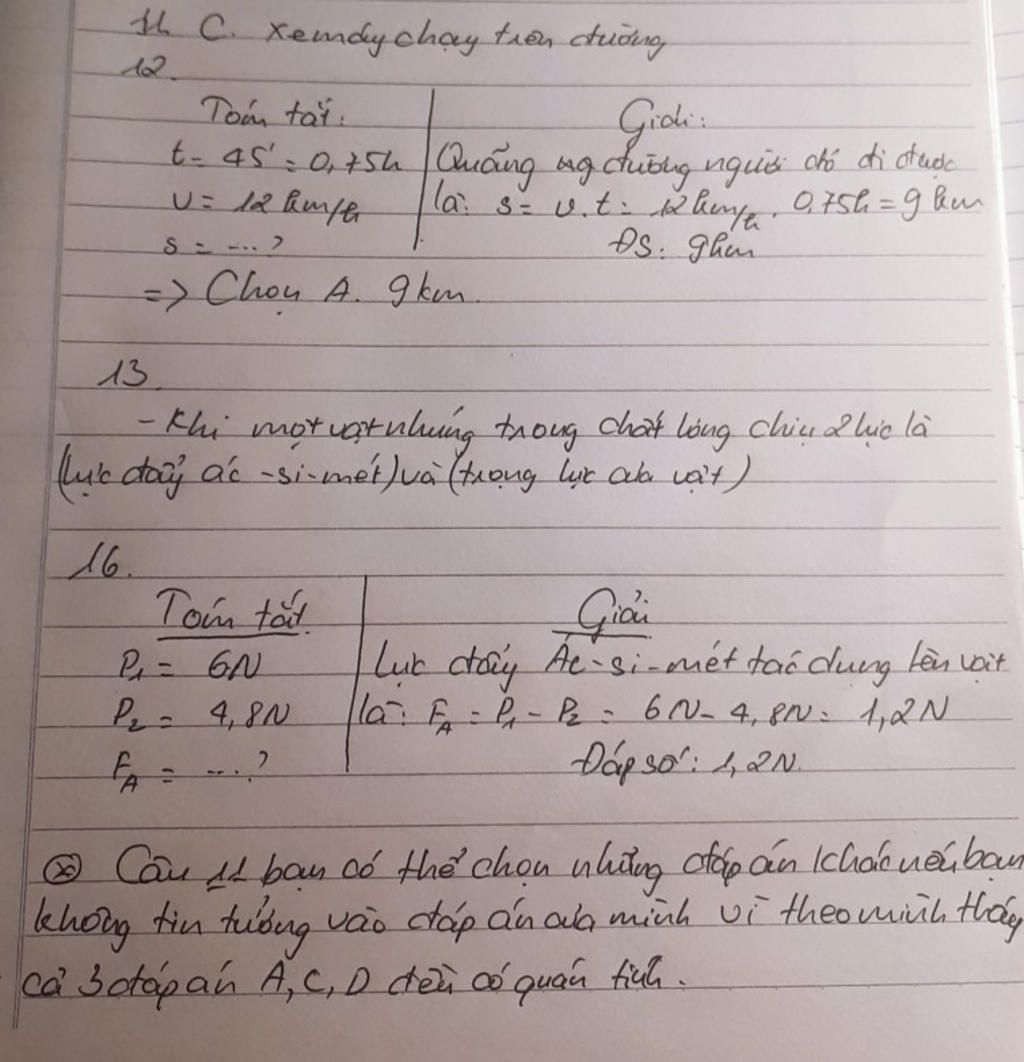 11. C. xe máy chạy trên đường
12.
Tóm tắt:
Giải:
t = 45' = 0,75h
Quãng ng đường người đó đi được
v = 12 km/h
là: s = v.t = 12 km/h. 0,75h = 9 km
s = ...?
ĐS: 9km
=> Chọn A. 9km.
13.
- Khi một vật nhúng trong chất lỏng chịu 2 lực là
(lực đẩy ác-si-mét) và (trọng lực của vật)
16.
Tóm tắt.
Giải
P1 = 6N
Lực đẩy Ác-si-mét tác dụng lên vật
P2 = 4,8N
là: FA = P1 - P2 = 6N - 4,8N = 1,2N
FA = ...?
Đáp số: 1,2N.
⊛ Câu 11 bạn có thể chọn những đáp án khác nếu bạn
không tin tưởng vào đáp án của mình vì theo mình thấy
cả 3 đáp án A, C, D đều có quán tính.